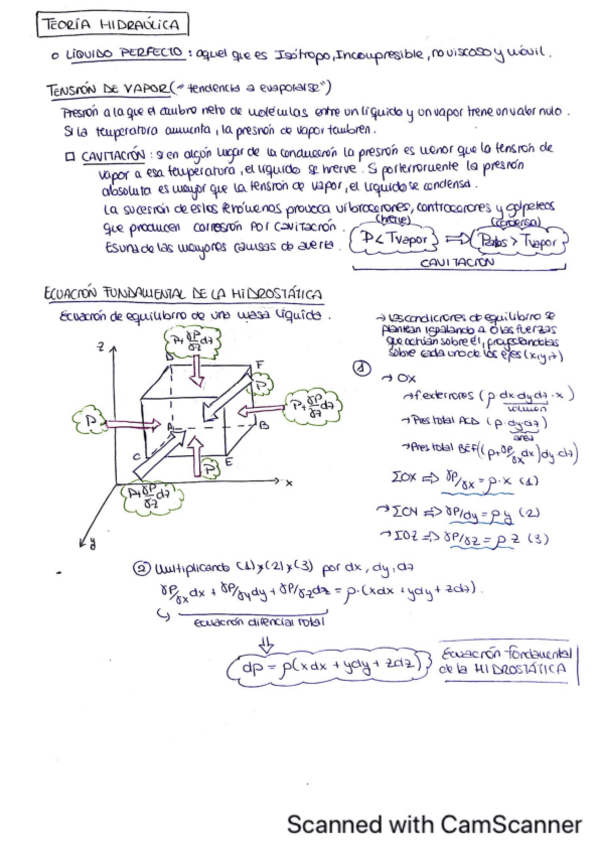 TEORÍA HIDRAÚLICA
o LÍQUIDO PERFECTO : aquel que es Isótropo, Incompresible, no viscoso y móvil.
TENSIÓN DE VAPOR ("tendencia a evaporarse")
Presión a la que el cambio neto de moléculas entre un líquido y un vapor tiene un valor nulo.
Si la temperatura aumenta, la presión de vapor también.
□ CAVITACIÓN : si en algún lugar de la conducción la presión es menor que la tensión de
vapor a esa temperatura, el líquido se hierve. Si posteriormente la presión
absoluta es mayor que la tensión de vapor, el líquido se condensa.
La sucesión de estos fenómenos provoca vibraciones, contracciones y golpeteos
que producen corrosión POR CAVITACIÓN.
Es una de las mayores causas de avería.
(hierve) (condensa)
P < Tvapor ⟹ Pabs > Tvapor
CAVITACIÓN
ECUACIÓN FUNDAMENTAL DE LA HIDROSTÁTICA
Ecuación de equilibrio de una masa líquida.
→ Las condiciones de equilibrio se
plantean igualando a 0 las fuerzas
que actúan sobre él, proyectándolas
sobre cada uno de los ejes (x,y,z)
z
P+ γP/γz dz
F
P
P
P+ γP/γz dz
A
B
C
E
P
P+ γP/γz dz
x
y
①
→ OX
→ f exteriores (ρ dx dy dz · x)
volumen
→ Pres total ACD (p · dy dz)
area
→ Pres total BEF ((p+ γP/γx dx) dy dz)
ΣOX ⟹ γP/γx = ρ · x (1)
→ ΣOY ⟹ γP/dy = ρ y (2)
→ ΣOZ ⟹ γP/γz = ρ z (3)
② Multiplicando (1) y (2) y (3) por dx, dy, dz
γP/γx dx + γP/γy dy + γP/γz dz = ρ · (xdx + ydy + zdz).
ecuación difencial total
dp = ρ(xdx + ydy + zdz)
Ecuación fundamental
de la HIDROSTÁTICA
Scanned with CamScanner